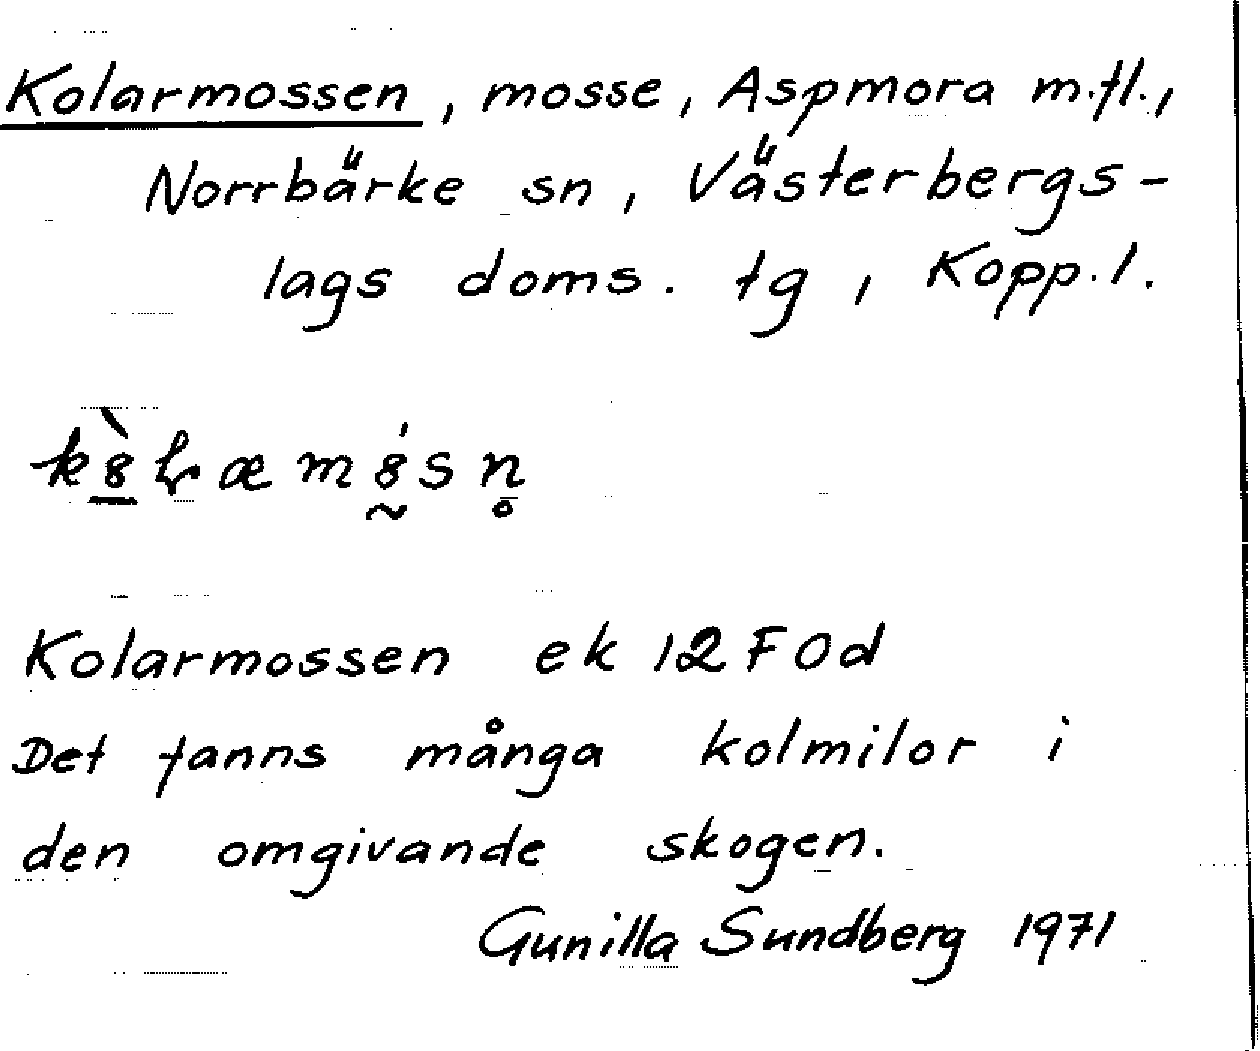 Kolarmossen, mosse, Aspmora m.fl.,
Norrbärke sn, Västerbergs-
lags doms. tg, Kopp.l.
Kolarmossen ek 12 F 0 d
Det fanns många kolmilor i
den omgivande skogen.
Gunilla Sundberg 1971